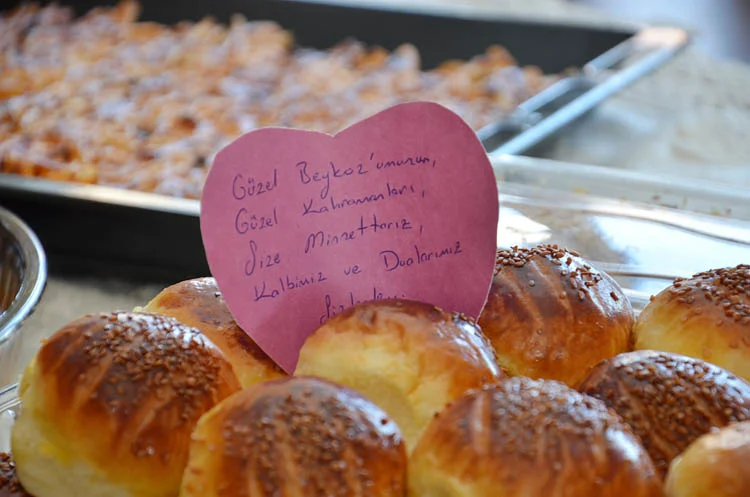 Güzel Beykoz'umuzun,
Güzel Kahramanları,
Size Minnettarız,
Kalbimiz ve Dualarımız